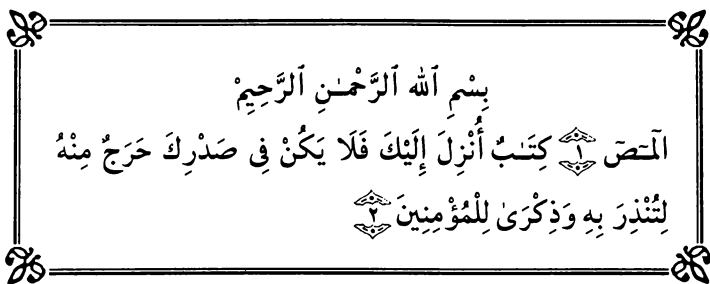 بِسْمِ ٱللَّهِ ٱلرَّحْمَـٰنِ ٱلرَّحِيمِ
الٓمٓصٓ ١ كِتَـٰبٌ أُنْزِلَ إِلَيْكَ فَلَا يَكُنْ فِى صَدْرِكَ حَرَجٌ مِنْهُ
لِتُنْذِرَ بِهِ وَذِكْرَىٰ لِلْمُؤْمِنِينَ ٢